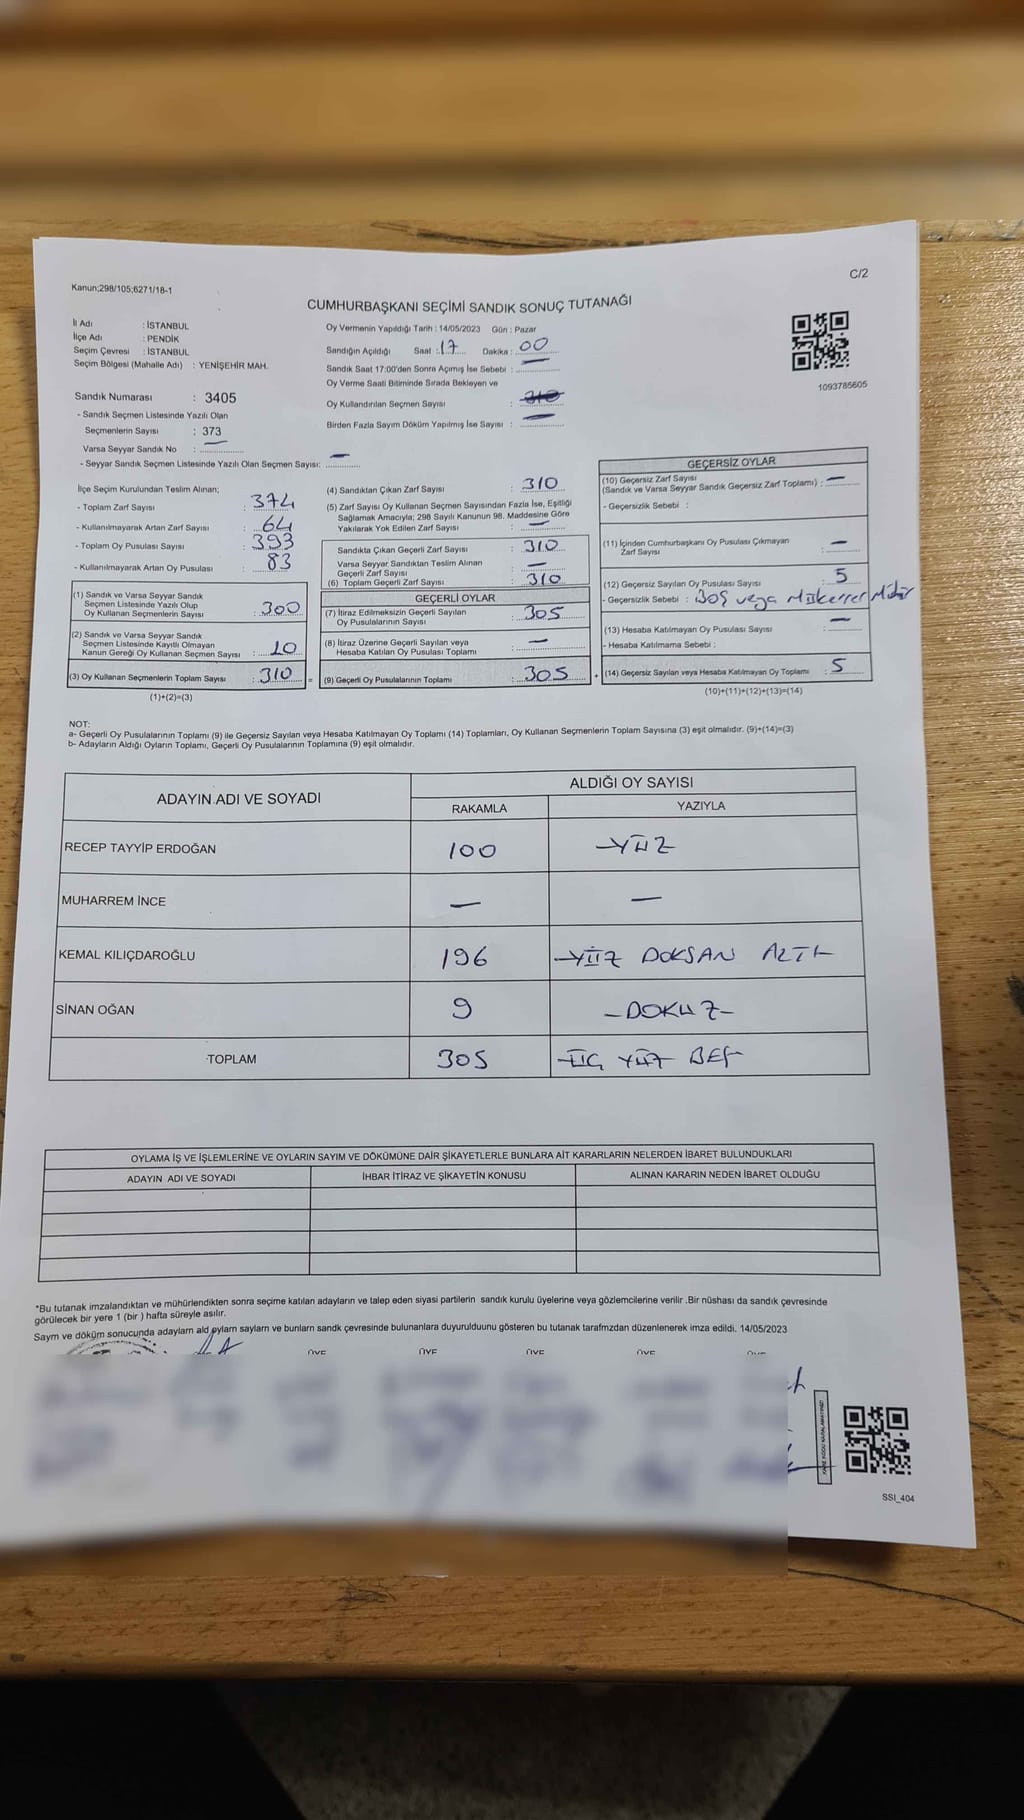 C/2
Kanun;298/105;6271/18-1
CUMHURBAŞKANI SEÇİMİ SANDIK SONUÇ TUTANAĞI
İl Adı : İSTANBUL
İlçe Adı : PENDİK
Seçim Çevresi : İSTANBUL
Seçim Bölgesi (Mahalle Adı) : YENİŞEHİR MAH.
Oy Vermenin Yapıldığı Tarih : 14/05/2023 Gün : Pazar
Sandığın Açıldığı Saat : 17 Dakika : 00
Sandık Saat 17:00'den Sonra Açımış İse Sebebi : —
Oy Verme Saati Bitiminde Sırada Bekleyen ve
Oy Kullandırılan Seçmen Sayısı : 310
Birden Fazla Sayım Döküm Yapılmış İse Sayısı : —
1093785605
Sandık Numarası : 3405
- Sandık Seçmen Listesinde Yazılı Olan
Seçmenlerin Sayısı : 373
Varsa Seyyar Sandık No : —
- Seyyar Sandık Seçmen Listesinde Yazılı Olan Seçmen Sayısı: —
İlçe Seçim Kurulundan Teslim Alınan;
- Toplam Zarf Sayısı : 374
- Kullanılmayarak Artan Zarf Sayısı : 64
- Toplam Oy Pusulası Sayısı : 393
- Kullanılmayarak Artan Oy Pusulası : 83
(1) Sandık ve Varsa Seyyar Sandık
Seçmen Listesinde Yazılı Olup
Oy Kullanan Seçmenlerin Sayısı : 300
(2) Sandık ve Varsa Seyyar Sandık
Seçmen Listesinde Kayıtlı Olmayan
Kanun Gereği Oy Kullanan Seçmen Sayısı : 10
(3) Oy Kullanan Seçmenlerin Toplam Sayısı : 310 =
(1)+(2)=(3)
(4) Sandıktan Çıkan Zarf Sayısı : 310
(5) Zarf Sayısı Oy Kullanan Seçmen Sayısından Fazla İse, Eşitliği
Sağlamak Amacıyla; 298 Sayılı Kanunun 98. Maddesine Göre
Yakılarak Yok Edilen Zarf Sayısı : —
Sandıkta Çıkan Geçerli Zarf Sayısı : 310
Varsa Seyyar Sandıktan Teslim Alınan
Geçerli Zarf Sayısı : —
(6) Toplam Geçerli Zarf Sayısı : 310
GEÇERLİ OYLAR
(7) İtiraz Edilmeksizin Geçerli Sayılan
Oy Pusulalarının Sayısı : 305
(8) İtiraz Üzerine Geçerli Sayılan veya
Hesaba Katılan Oy Pusulası Toplamı : —
(9) Geçerli Oy Pusulalarının Toplamı : 305 +
GEÇERSİZ OYLAR
(10) Geçersiz Zarf Sayısı
(Sandık ve Varsa Seyyar Sandık Geçersiz Zarf Toplamı) : —
- Geçersizlik Sebebi :
(11) İçinden Cumhurbaşkanı Oy Pusulası Çıkmayan
Zarf Sayısı : —
(12) Geçersiz Sayılan Oy Pusulası Sayısı : 5
- Geçersizlik Sebebi : Boş veya Mükerrer Mühür
(13) Hesaba Katılmayan Oy Pusulası Sayısı : —
- Hesaba Katılmama Sebebi :
(14) Geçersiz Sayılan veya Hesaba Katılmayan Oy Toplamı : 5
(10)+(11)+(12)+(13)=(14)
NOT:
a- Geçerli Oy Pusulalarının Toplamı (9) ile Geçersiz Sayılan veya Hesaba Katılmayan Oy Toplamı (14) Toplamları, Oy Kullanan Seçmenlerin Toplam Sayısına (3) eşit olmalıdır. (9)+(14)=(3)
b- Adayların Aldığı Oyların Toplamı, Geçerli Oy Pusulalarının Toplamına (9) eşit olmalıdır.
ADAYIN ADI VE SOYADI
ALDIĞI OY SAYISI
RAKAMLA YAZIYLA
RECEP TAYYİP ERDOĞAN 100 -YÜZ
MUHARREM İNCE — —
KEMAL KILIÇDAROĞLU 196 -YÜZ DOKSAN ALTI-
SİNAN OĞAN 9 -DOKUZ-
TOPLAM 305 -ÜÇ YÜZ BEŞ-
OYLAMA İŞ VE İŞLEMLERİNE VE OYLARIN SAYIM VE DÖKÜMÜNE DAİR ŞİKAYETLERLE BUNLARA AİT KARARLARIN NELERDEN İBARET BULUNDUKLARI
ADAYIN ADI VE SOYADI İHBAR İTİRAZ VE ŞİKAYETİN KONUSU ALINAN KARARIN NEDEN İBARET OLDUĞU
*Bu tutanak imzalandıktan ve mühürlendikten sonra seçime katılan adayların ve talep eden siyasi partilerin sandık kurulu üyelerine veya gözlemcilerine verilir .Bir nüshası da sandık çevresinde
görülecek bir yere 1 (bir ) hafta süreyle asılır.
Sayım ve döküm sonucunda adayların ald oyların sayları ve bunların sandk çevresinde bulunanlara duyurulduunu gösteren bu tutanak tarafmzdan düzenlenerek imza edildi. 14/05/2023
ÜYE ÜYE ÜYE ÜYE
SSI_404